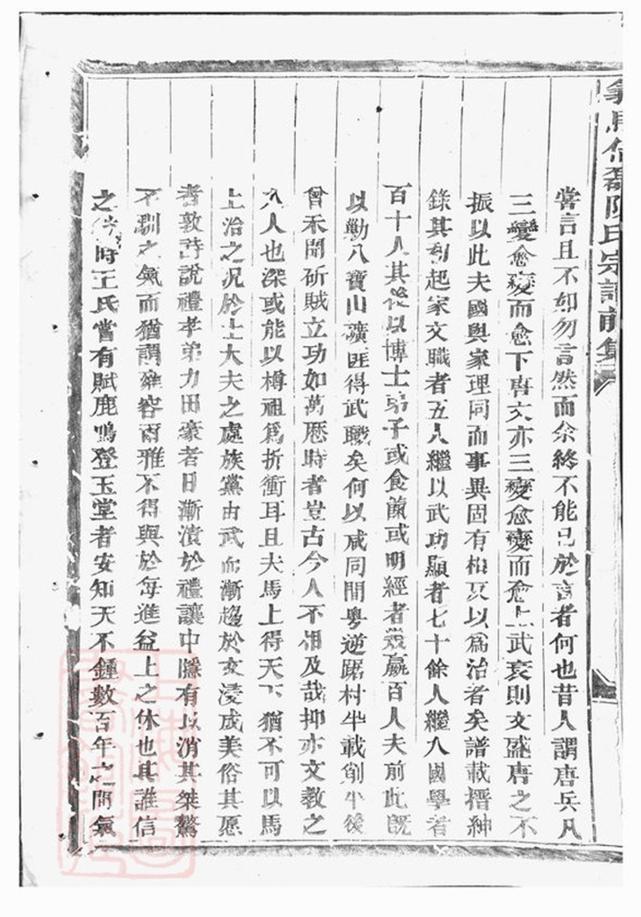 陳氏宗譜前集
嘗言且不如勿言然而余終不能已於言者何也昔人謂唐兵凡
三變愈變而愈下唐文亦三變愈變而愈上武衰則文盛唐之不
振以此夫國與家理同而事異固有相反以為治者矣譜載搢紳
錄其初起家文職者五人繼以武功顯者七十餘人繼入國學者
百十人其後以博士弟子或食餼或明經者叢贏百人夫前此既
以勦八寶山礦匪得武職矣何以咸同間粵逆踞村半載餘年後
曾未聞斫賊立功如萬曆時者豈古今人不相及哉抑亦文教之
入人也深或能以樽俎為折衝耳且夫馬上得天下猶不可以馬
上治之況於士大夫之處族黨由武而漸趨於文浸成美俗其愿
者敦詩說禮孝弟力田豪者日漸漬於禮讓中隱有以消其桀驁
不馴之氣而猶謂雍容爾雅不得與於每進益上之休也其誰信
之 時王氏嘗有賦鹿鳴登玉堂者安知天不鍾數百年之間氣